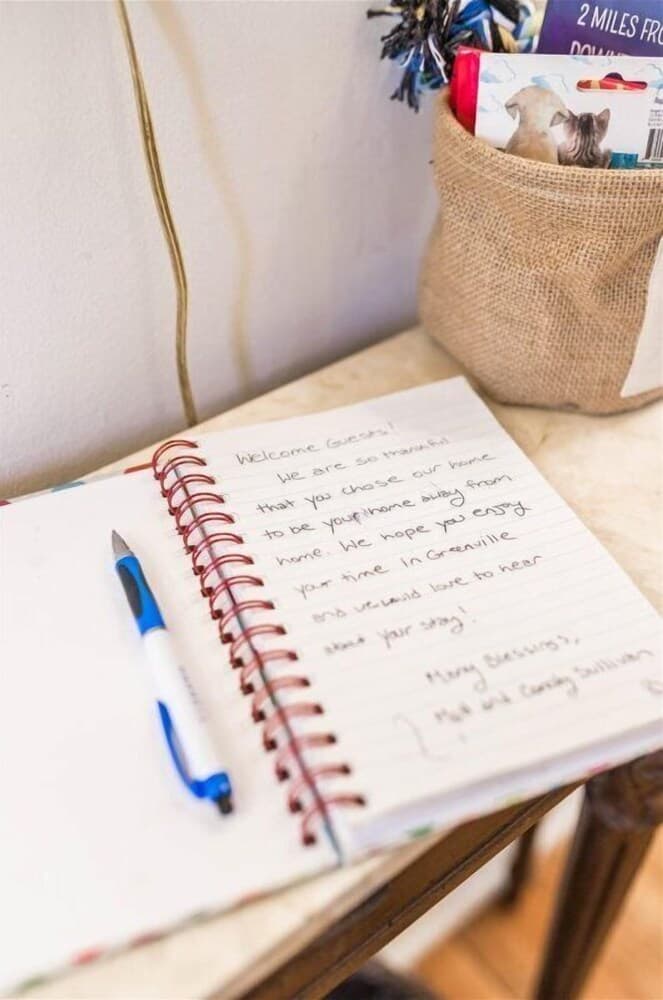 2 MILES FRO
DOWN
Welcome Guests!
We are so thankful
that you chose our home
to be your home away from
home. We hope you enjoy
your time in Greenville
and we would love to hear
about your stay!
Many Blessings,
Matt and Sullivan